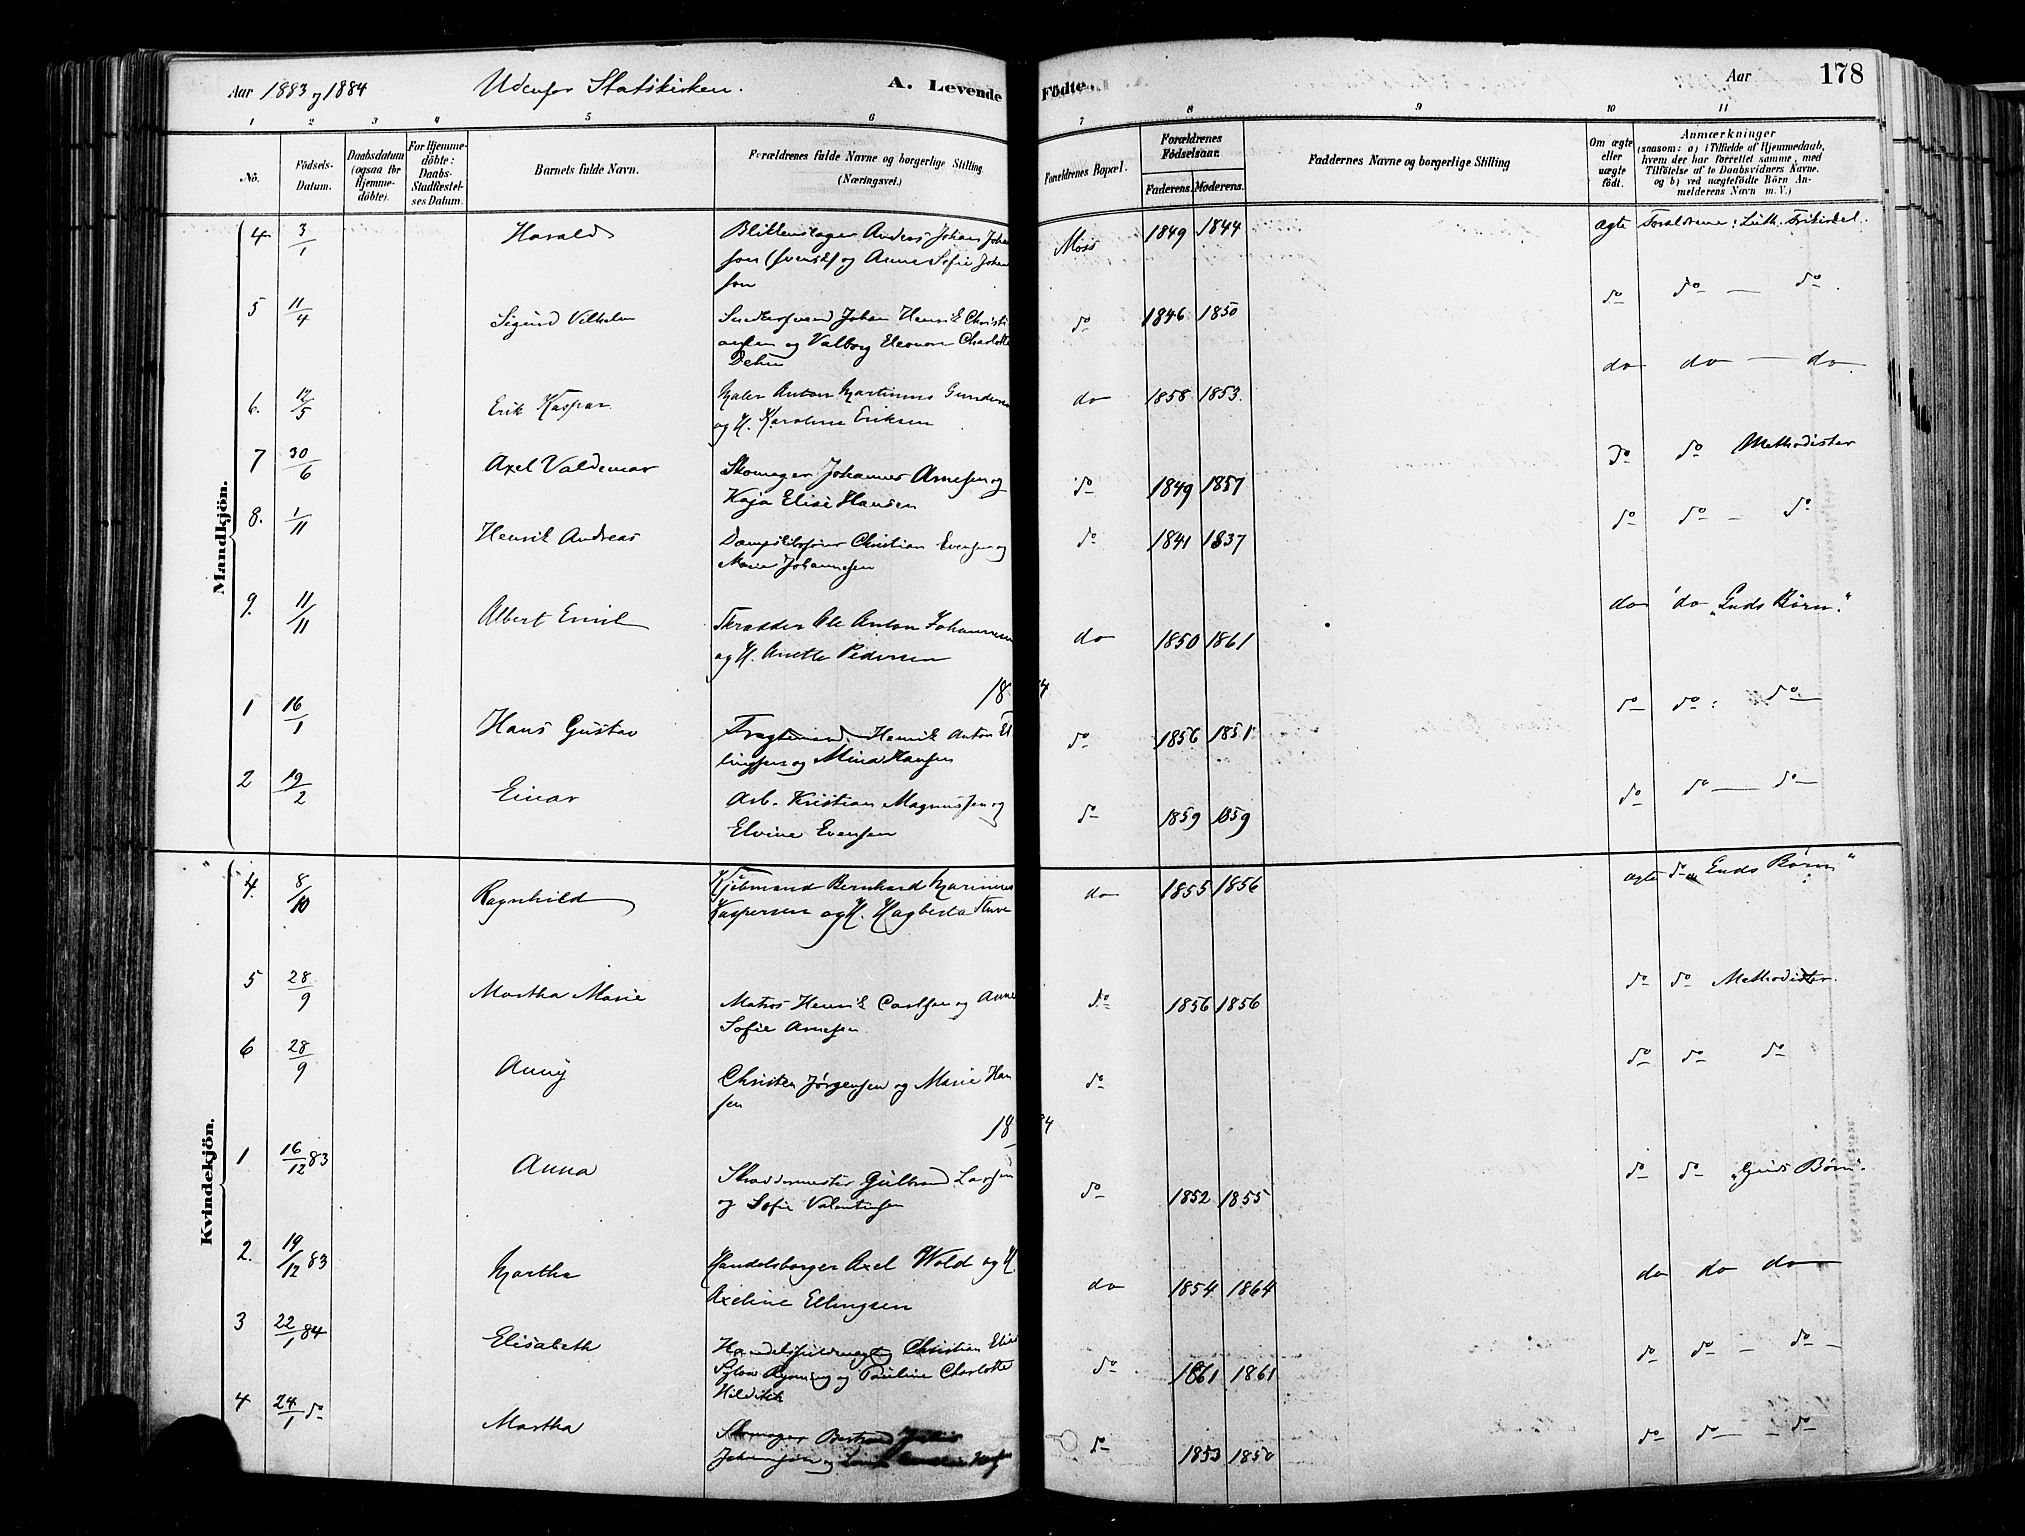 Aar 1883 og 1884 Udenfor Statskirken. A. Levende Födte. Aar 178
1 2 3 4 5 6 7 8 9 10 11
No. Födsels-Datum. Daabsdatum (ogsaa for Hjemme-döbte). For Hjemme-döbte: Daabs-Stadfæstel-ses Datum. Barnets fulde Navn. Forældrenes fulde Navne og borgerlige Stilling (Næringsvei.) Forældrenes Bopæl. Forældrenes Födselsaar. Faderens. Moderens. Faddernes Navne og borgerlige Stilling Om ægte eller uægte födt. Anmærkninger (saasom: a) i Tilfælde af Hjemmedaab, hvem der har forrettet samme, med Tilföielse af to Daabsvidners Navne. og b) ved uægtefödte Börn An-melderens Navn m. V.)
Mandkjön.
4 3/1 Harald Blikkenslager Anders Johan Johan
sen (svensk) og Anna Sofie Johan
sen Moss 1849 1844 ægte Forældrene: Luth. Frikirkel.
5 11/4 Sigurd Vilhelm Johan Henrik Christi
ansen og Valborg Eleonore Charlotte
Dehn do 1846 1850 do do — do.
6. 12/5 Erik Kaspar Maler Anton Martinius Gunders
og H. Karoline Eriksen do 1858 1853. do do — do.
7 30/6 Axel Valdemar Skomager Johannes Arnesen og
Kaja Elise Hansen do 1849 1857 do do Methodister
8. 1/11 Henrik Andreas Christian Evensen og
Marie Johannesen do 1841 1837 do do — do
9. 11/11 Albert Emil Skrædder Ole Anton Johannesen
og H. Anette Pedersen do 1850 1861 do do "Guds Børn."
1884
1 16/1 Hans Gustav Fragtemand Henrik Anton El
lingsen og Mina Hansen do 1856 1851 do do: do —
2 19/2 Einar Arb. Kristian Magnussen og
Elvine Evensen do 1859 1859 do do — do —
Kvindekjön.
4. 8/10 Ragnhild Kjöbmand Bernhard Marinius
Kaspersen og H. Hagberta do 1855 1856 ægte do "Guds Børn"
5 28/9 Martha Marie Matros Henrik Carlsen og Anne
Sofie Arnesen do 1856 1856 do do Methodister.
6 28/9 Anny Christen Jørgensen og Marie Han
sen do do do do
1884
1 16/12 83 Anna Skræddermester Gulbrand Larsen
og Sofie Valentinsen do 1852 1855 do do "Guds Børn".
2. 19/12 83 Martha Handelsborger Axel Wold og H.
Axeline Ellingsen do 1854 1864 do do do
3 22/1 84 Elisabeth Christian Elias
og Pauline Charlotte
do 1861 1861 do do — do —
4 24/1 do Martha Skomager
Johansen og do 1853 1850 do do — do